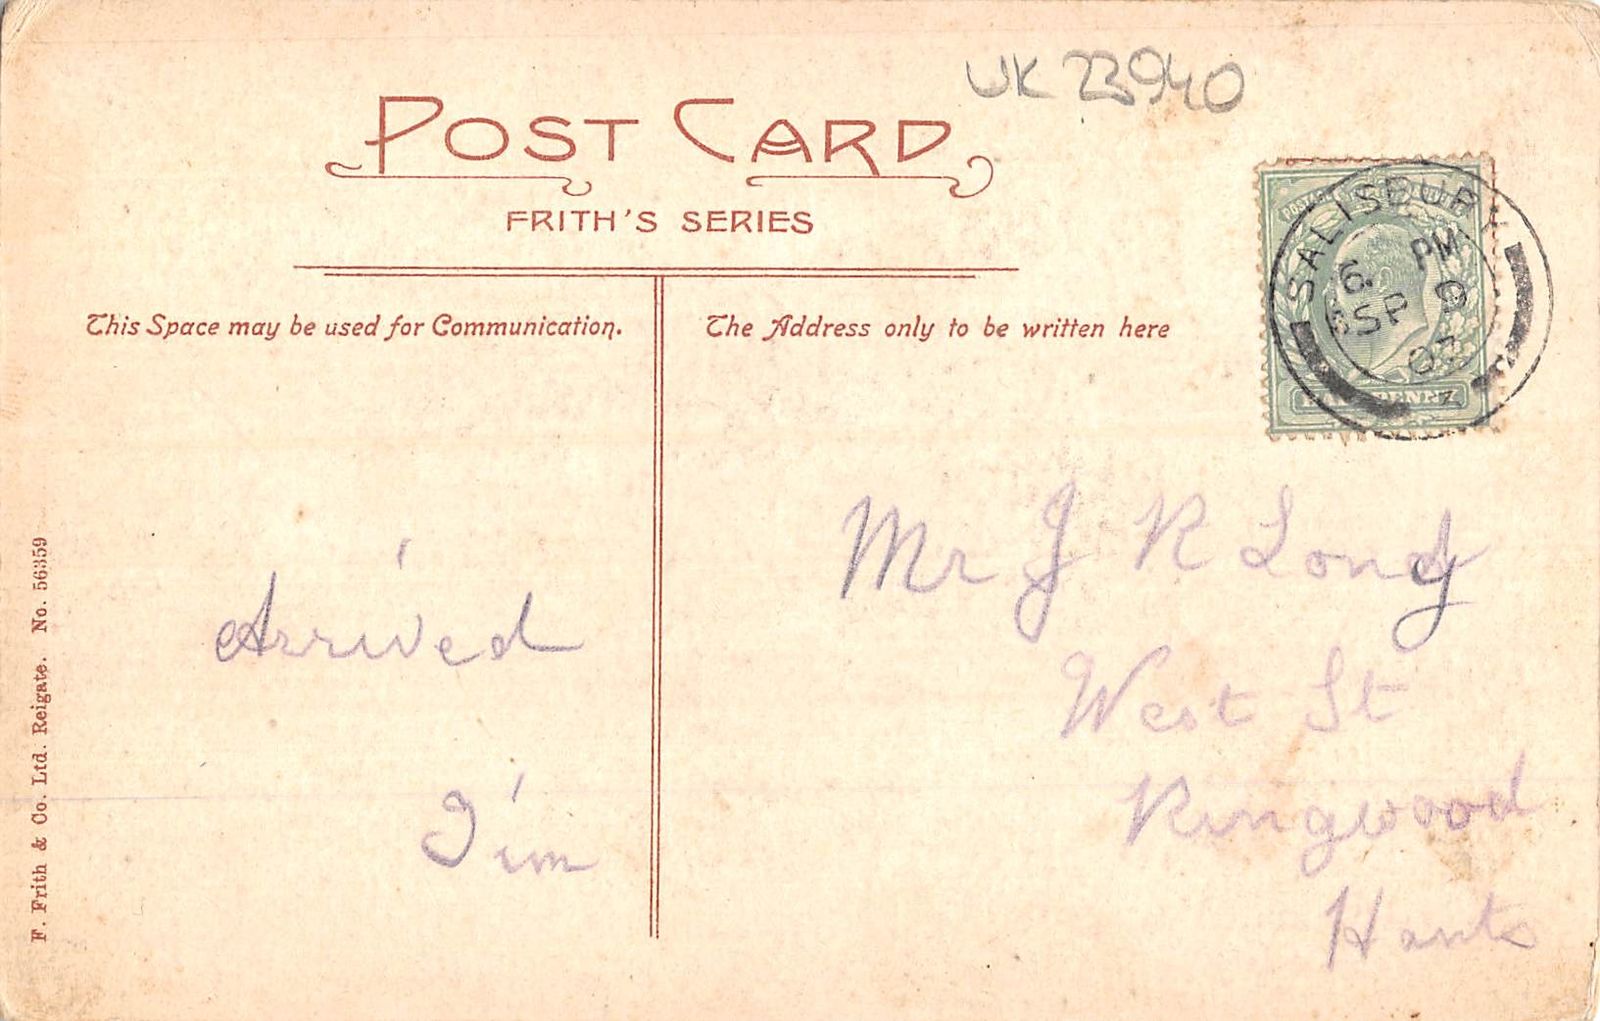 UK 23940
POST CARD
FRITH'S SERIES
This Space may be used for Communication.
The Address only to be written here
SALISBURY
6. PM
SP 9
03
HALFPENNY
Arrived
Jim
Mr J R Long
West St
Ringwood
Hants
F. Frith & Co. Ltd. Reigate. No. 56359